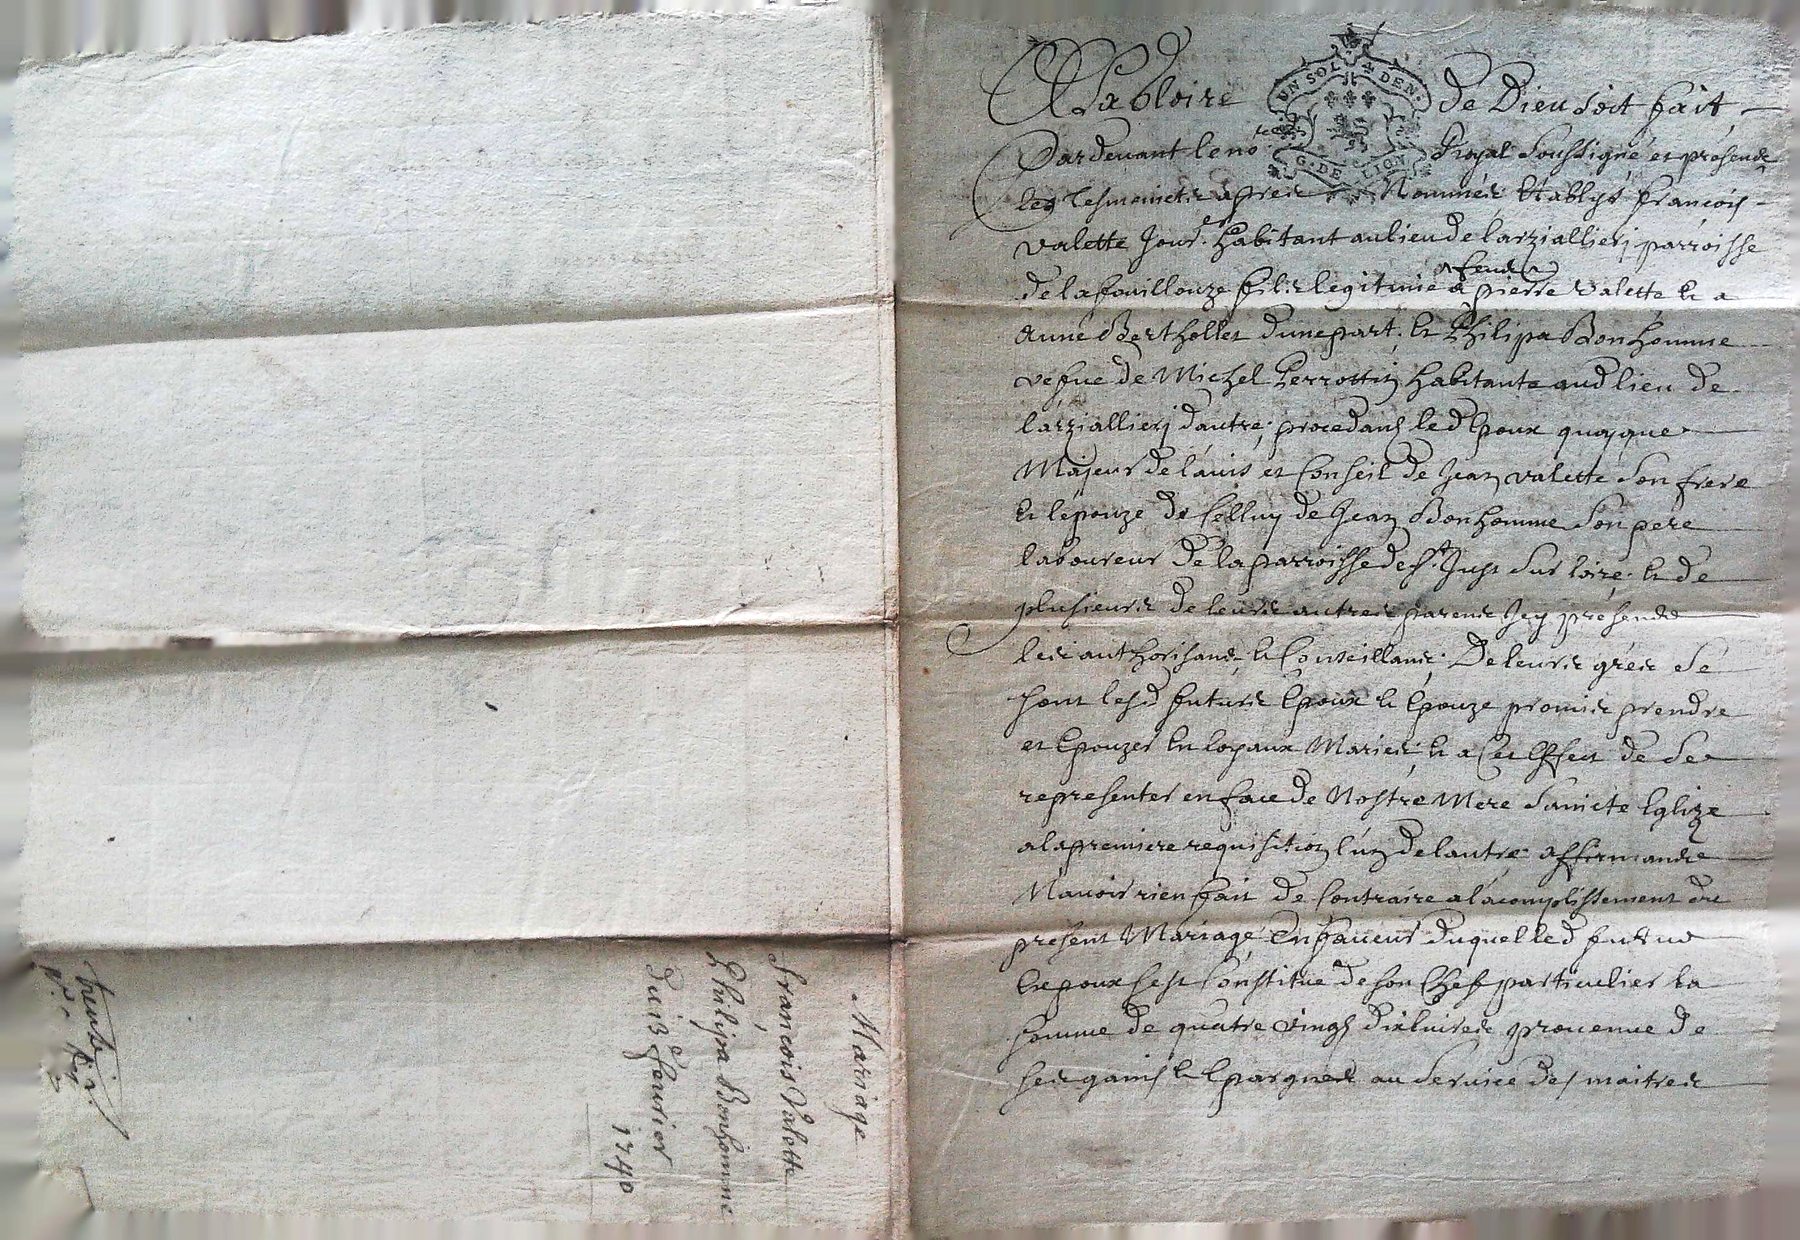 Mariage
François Valette
Philipa Bonhomme
Du 13e feurier
1740
A La Gloire de Dieu soit fait
UN SOL 4 DEN.
G. DE LION
Pardeuant le nore Royal soussigné et présends
les tesmoinctz apres Nommés Establys françois
valette Jour. habitant au lieu de larziallierj parroisse
de la fouillouze filz legitime a feud pierre valette & a
Anne Berthollet dune part, & Philipa Bonhomme
vefue de Michel Perrottin habitante aud lieu de
larziallierj dautre; procedans led Epoux quoyque
Majeur de lauis et Conseil de Jean valette son frere
& lépouze de Celluy de Jean Bonhomme son pere
laboureur de la parroisse de St Just sur loire & de
plusieurs de leurs autres parens Jcy présends
les authorisans & Conseillans; De leurs gréz se
sont lesd futurs Epoux & Epouze promis prendre
et Epouzer en loyaux Mariés, & a Cet Effect de se
representer en face de Nostre Mere Saincte Eglize
a la premiere requisition lun de lautre affirmands
Nauoir rien fait de Contraire a lacomplissement du
present Mariage En faueur duquel led futur
Epoux sest Constitué de son Chef particulier la
somme de quatre vingts dix liures prouenue de
ses gains & Epargnes au seruice des maitres